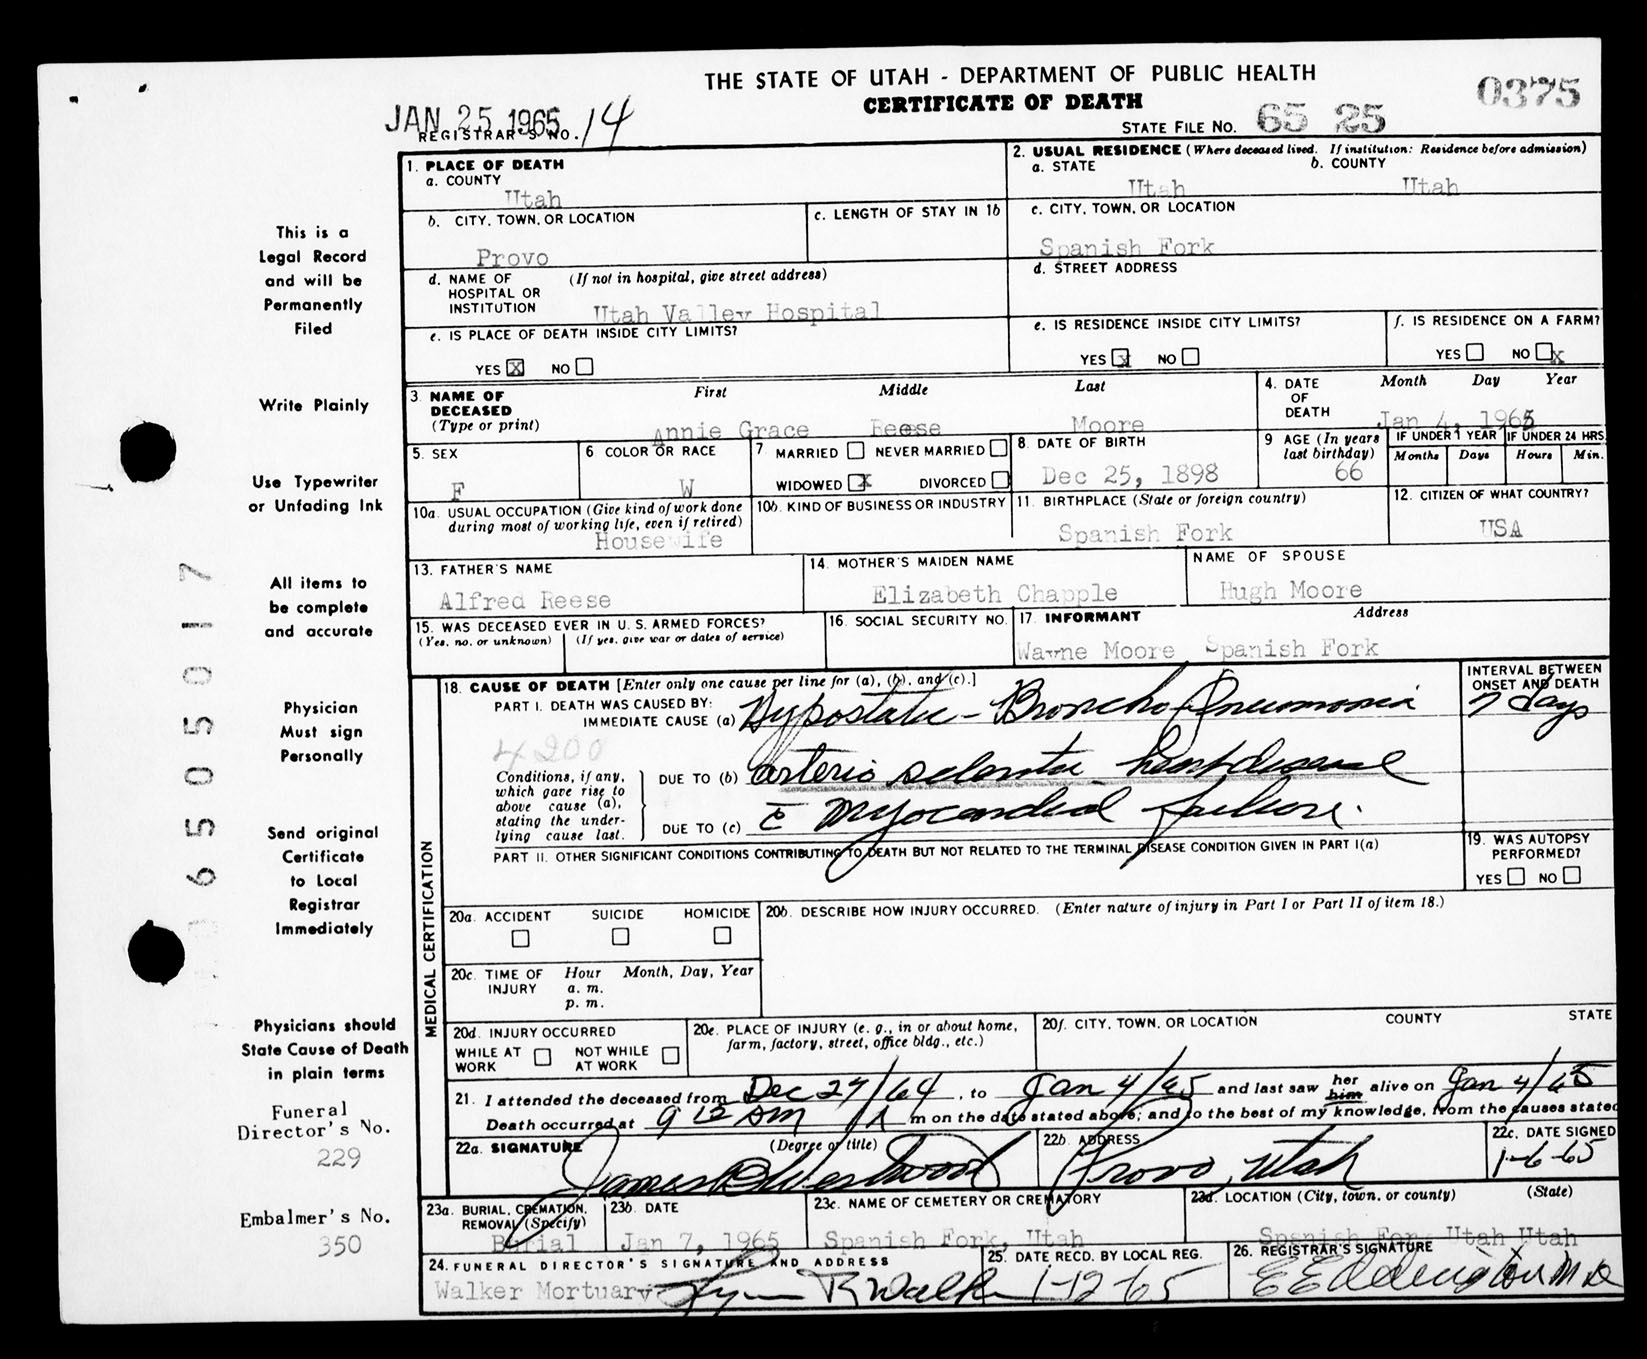 THE STATE OF UTAH - DEPARTMENT OF PUBLIC HEALTH
CERTIFICATE OF DEATH
0375
JAN 25 1965
REGISTRAR'S NO. 14
STATE FILE NO. 65 25
1. PLACE OF DEATH
a. COUNTY
Utah
2. USUAL RESIDENCE (Where deceased lived. If institution: Residence before admission)
a. STATE
Utah
b. COUNTY
Utah
b. CITY, TOWN, OR LOCATION
Provo
c. LENGTH OF STAY IN 1b
c. CITY, TOWN, OR LOCATION
Spanish Fork
d. NAME OF HOSPITAL OR INSTITUTION (If not in hospital, give street address)
Utah Valley Hospital
d. STREET ADDRESS
e. IS PLACE OF DEATH INSIDE CITY LIMITS?
YES X NO
e. IS RESIDENCE INSIDE CITY LIMITS?
YES X NO
f. IS RESIDENCE ON A FARM?
YES NO X
3. NAME OF DECEASED (Type or print)
First Middle Last
Annie Grace Reese Moore
4. DATE OF DEATH
Month Day Year
Jan 4, 1965
5. SEX
F
6 COLOR OR RACE
W
7 MARRIED NEVER MARRIED
WIDOWED X DIVORCED
8. DATE OF BIRTH
Dec 25, 1898
9 AGE (In years last birthday)
66
IF UNDER 1 YEAR
Months Days
IF UNDER 24 HRS.
Hours Min.
10a. USUAL OCCUPATION (Give kind of work done during most of working life, even if retired)
Housewife
10b. KIND OF BUSINESS OR INDUSTRY
11 BIRTHPLACE (State or foreign country)
Spanish Fork
12. CITIZEN OF WHAT COUNTRY?
USA
13. FATHER'S NAME
Alfred Reese
14. MOTHER'S MAIDEN NAME
Elizabeth Chapple
NAME OF SPOUSE
Hugh Moore
15. WAS DECEASED EVER IN U. S. ARMED FORCES?
(Yes, no, or unknown) (If yes, give war or dates of service)
16. SOCIAL SECURITY NO.
17 INFORMANT Address
Wayne Moore Spanish Fork
MEDICAL CERTIFICATION
18. CAUSE OF DEATH [Enter only one cause per line for (a), (b), and (c).]
PART I. DEATH WAS CAUSED BY:
IMMEDIATE CAUSE (a) Hypostatic - Broncho Pneumonia
INTERVAL BETWEEN ONSET AND DEATH
7 days
4200
Conditions, if any, which gave rise to above cause (a), stating the underlying cause last.
DUE TO (b) arterio sclerotic heart disease
DUE TO (c) c̄ myocardial failure.
PART II. OTHER SIGNIFICANT CONDITIONS CONTRIBUTING TO DEATH BUT NOT RELATED TO THE TERMINAL DISEASE CONDITION GIVEN IN PART I(a)
19. WAS AUTOPSY PERFORMED?
YES NO
20a. ACCIDENT SUICIDE HOMICIDE
20b. DESCRIBE HOW INJURY OCCURRED. (Enter nature of injury in Part I or Part II of item 18.)
20c. TIME OF INJURY
Hour Month, Day, Year
a. m.
p. m.
20d. INJURY OCCURRED
WHILE AT WORK NOT WHILE AT WORK
20e. PLACE OF INJURY (e. g., in or about home, farm, factory, street, office bldg., etc.)
20f. CITY, TOWN, OR LOCATION COUNTY STATE
21. I attended the deceased from Dec 29/64, to Jan 4/65 and last saw her him alive on Jan 4/65
Death occurred at 9 12 am m on the date stated above; and to the best of my knowledge, from the causes stated
22a. SIGNATURE (Degree or title)
James B Westwood
22b. ADDRESS
Provo, Utah
22c. DATE SIGNED
1-6-65
23a. BURIAL, CREMATION, REMOVAL (Specify)
Burial
23b. DATE
Jan 7, 1965
23c. NAME OF CEMETERY OR CREMATORY
Spanish Fork, Utah
23d. LOCATION (City, town, or county) (State)
Spanish Fork Utah Utah
24. FUNERAL DIRECTOR'S SIGNATURE AND ADDRESS
Walker Mortuary
25. DATE RECD. BY LOCAL REG.
1-12-65
26. REGISTRAR'S SIGNATURE
E E Eddington M D
This is a
Legal Record
and will be
Permanently
Filed
Write Plainly
Use Typewriter
or Unfading Ink
All items to
be complete
and accurate
Physician
Must sign
Personally
Send original
Certificate
to Local
Registrar
Immediately
Physicians should
State Cause of Death
in plain terms
Funeral
Director's No.
229
Embalmer's No.
350
65050517